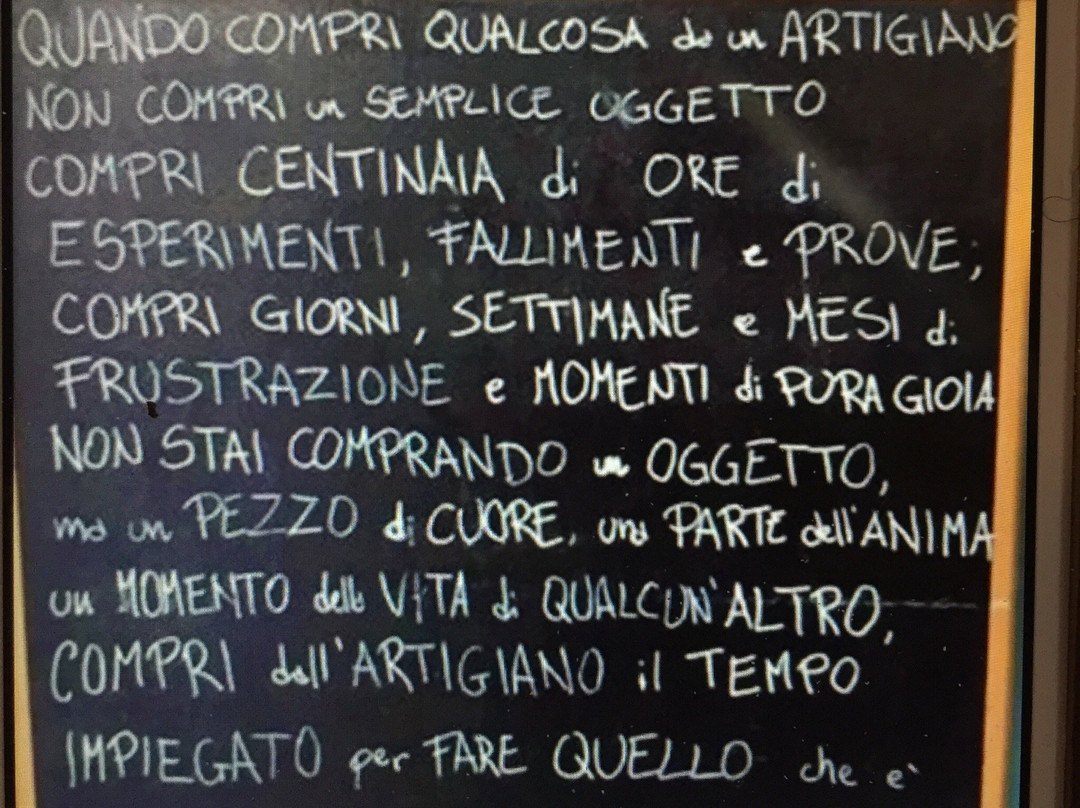 QUANDO COMPRI QUALCOSA da un ARTIGIANO
NON COMPRI un SEMPLICE OGGETTO
COMPRI CENTINAIA di ORE di
ESPERIMENTI, FALLIMENTI e PROVE;
COMPRI GIORNI, SETTIMANE e MESI di
FRUSTRAZIONE e MOMENTI di PURA GIOIA
NON STAI COMPRANDO un OGGETTO,
ma un PEZZO di CUORE, una PARTE dell'ANIMA
un MOMENTO della VITA di QUALCUN'ALTRO,
COMPRI dall'ARTIGIANO il TEMPO
IMPIEGATO per FARE QUELLO che e'